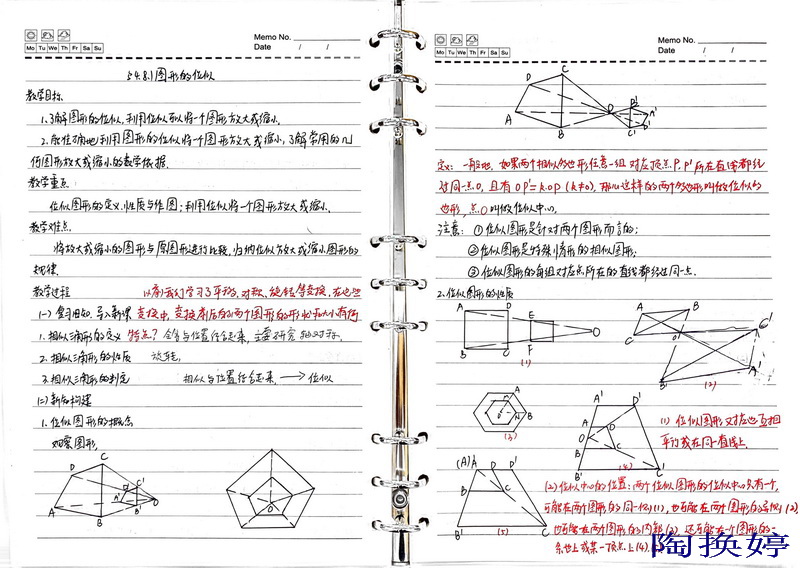 Memo No.
Mo Tu We Th Fr Sa Su
Date / /
§4.8.1图形的位似
教学目标
1.了解图形的位似,利用位似可以将一个图形放大或缩小.
2.能准确地利用图形的位似将一个图形放大或缩小,了解常用的几
何图形放大或缩小的数学依据.
教学重点
位似图形的定义.性质与作图;利用位似将一个图形放大或缩小.
教学难点
将放大或缩小的图形与原图形进行比较,归纳位似方放大或缩小图形的
规律.
教学过程 以前我们学习了平移,对称,旋转等变换,在这些
(一)复习旧知,导入新课 变换中,变换前后的两个图形的形状和大小有何
1.相似三角形的定义 特点? 全等与位置结合起来,主要研究轴对称,
2.相似三角形的性质 旋转.
3.相似三角形的判定 相似与位置结合起来, → 位似
(二)新知构建
1.位似图形的概念
观察图形,
D C A B A' B' C' D' O
O
Memo No.
Mo Tu We Th Fr Sa Su
Date / /
D C A B O B' A' C' D'
定义:一般地,如果两个相似多边形任意一组对应顶点P.P'所在直线都经
过同一点O,且有OP'=k·OP(k≠0),那么这样的两个多边形叫做位似多
边形,点O叫做位似中心.
注意:①位似图形是针对两个图形而言的;
②位似图形是特殊情形的相似图形;
③位似图形的每组对应点所在的直线都经过同一点.
2.位似图形的性质
A D E O B C F (1)
A B C O C' A' B' (2)
A O N B (3)
A' D' A D O B C B' C' (4)
(1)位似图形对应边互相
平行或在同一直线上.
(A)A' D D' B C B' C' (5)
(2)位似中心的位置:两个位似图形的位似中心只有一个,
可能在两个图形的同一侧(1),也可能在两个图形的异侧(2)
也可能在两个图形的内部(3),还可能在一个图形的一
条边上或某一顶点上(4).
陶换婷